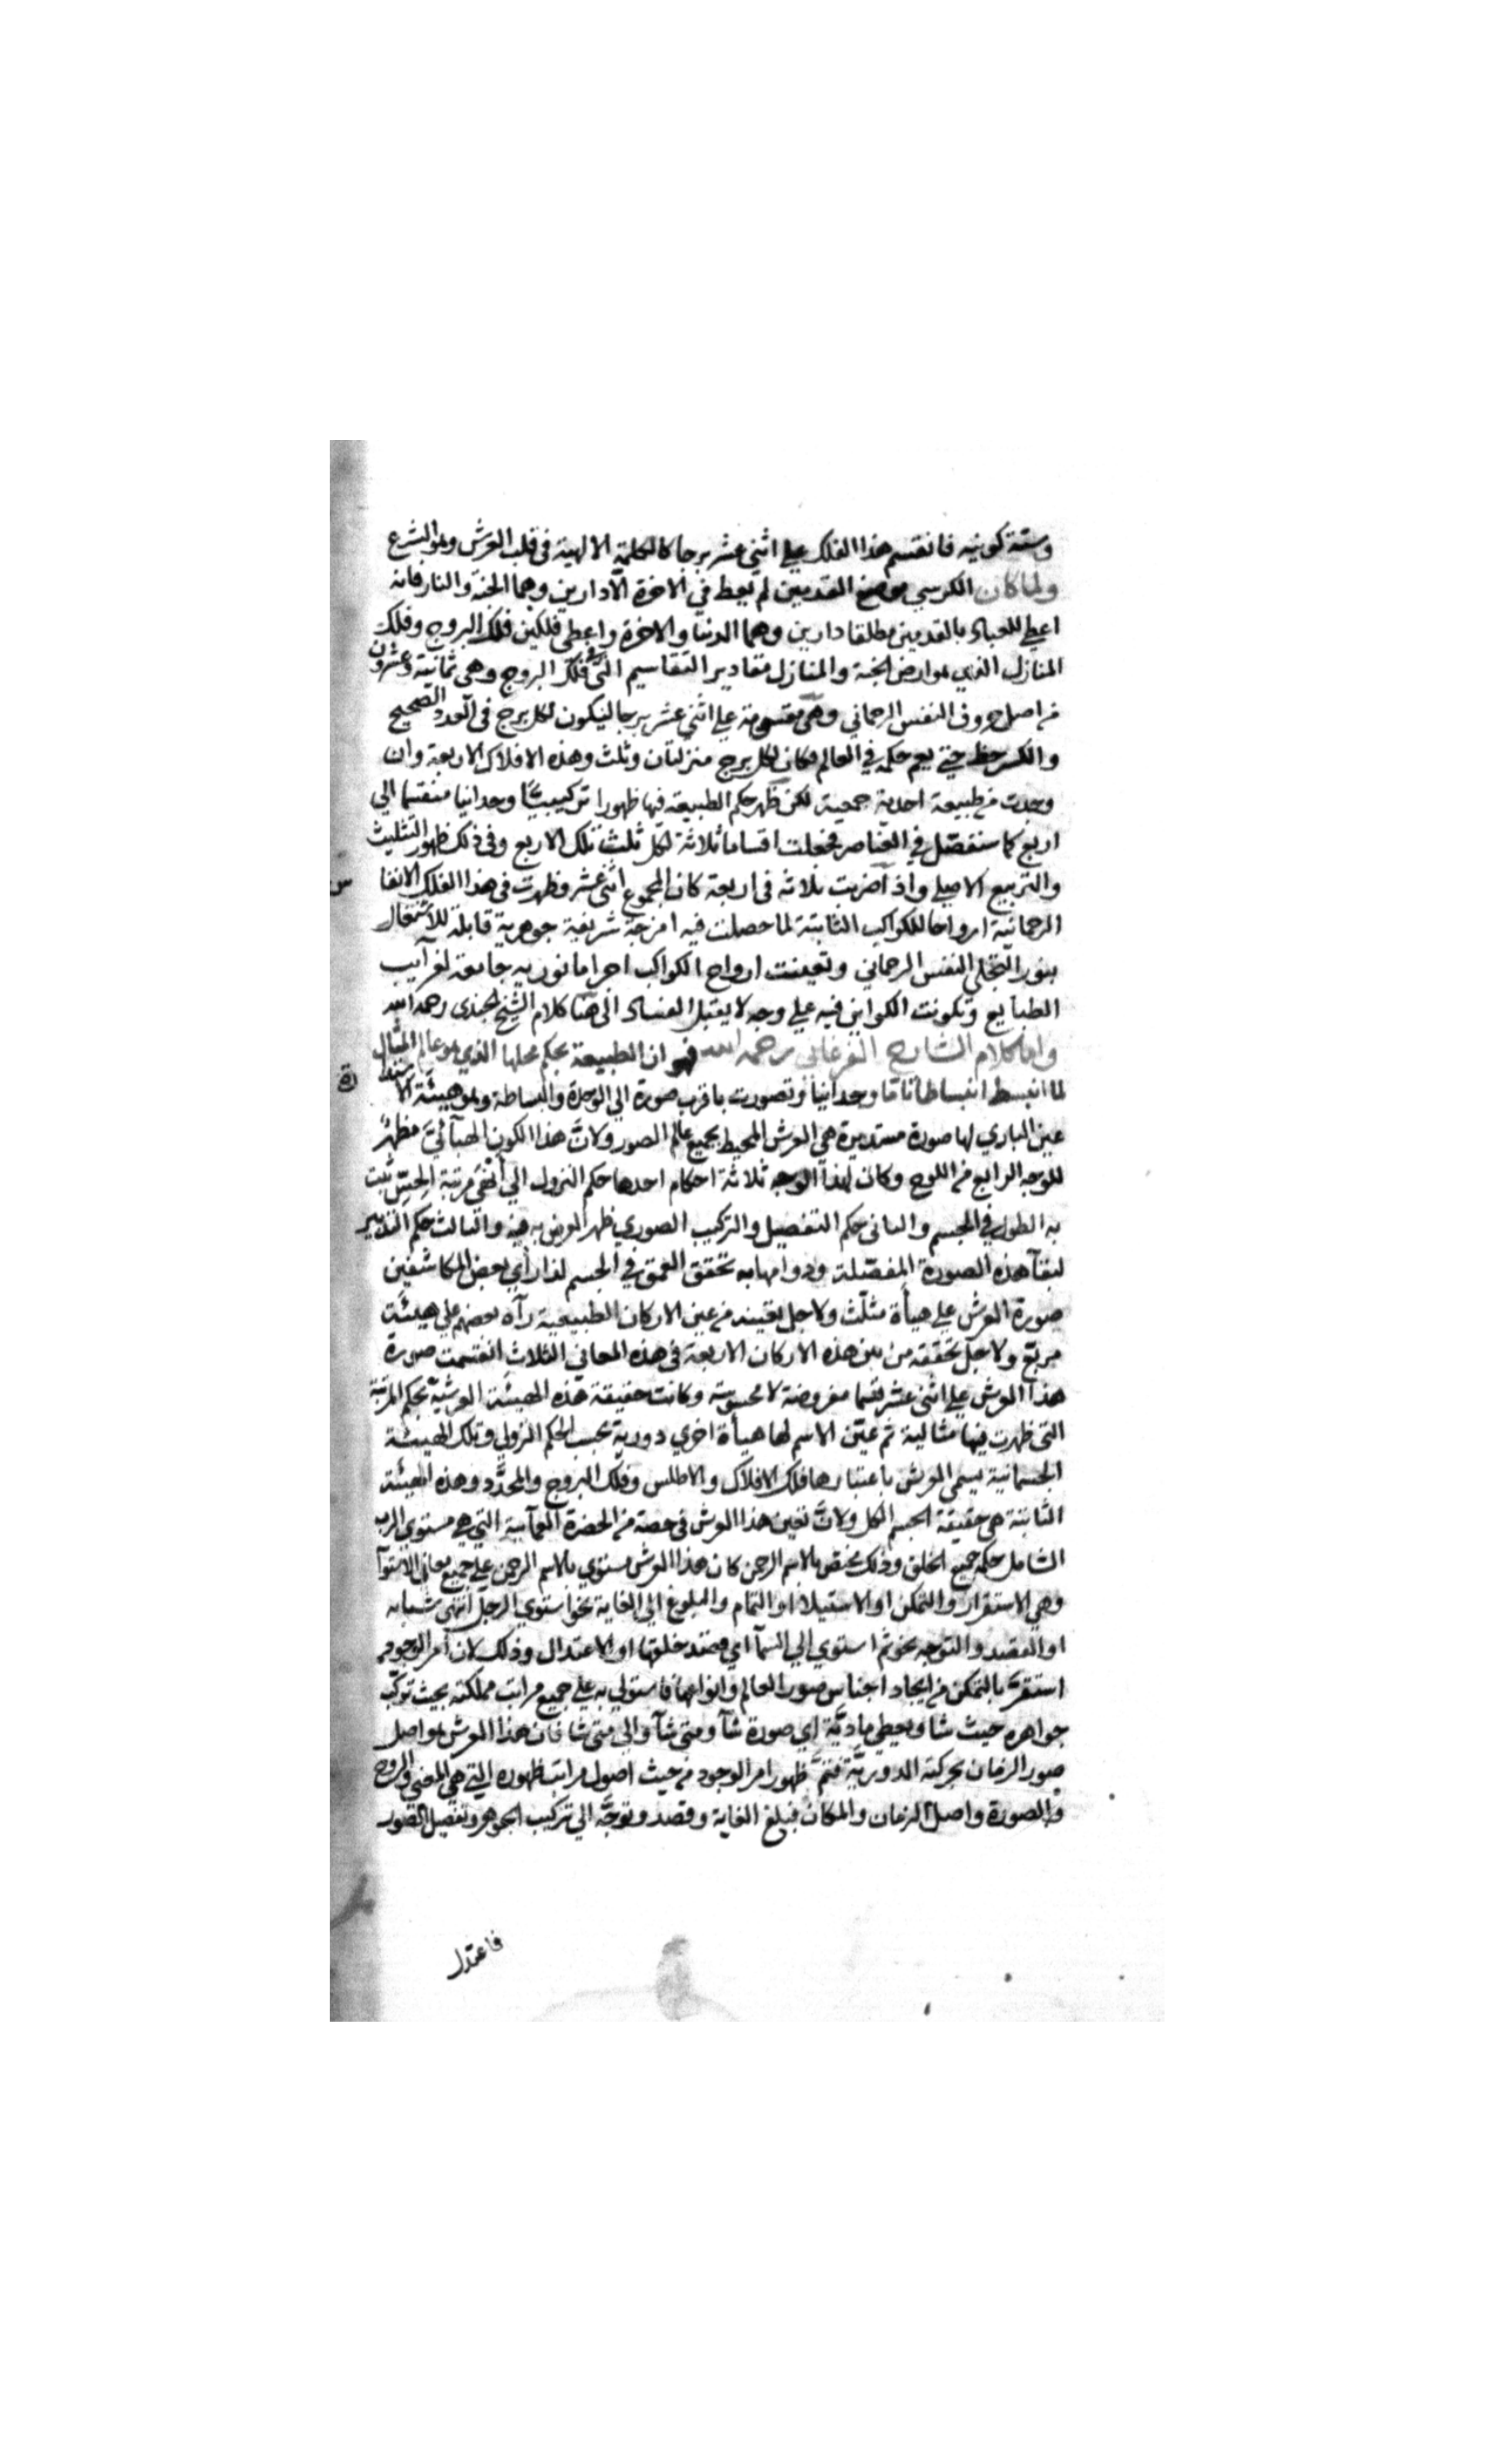 وستة كونيه فانقسم هذا الفلك علي اثني عشر برجا كالكلمة الالهية في قلب العرش وهو الشرع
ولما كان الكرسي موضع القدمين لم يعط في الاخرة الا دارين وهما الجنة والنار فانه
اعطي للعباد بالقدمين مطلقا دارين وهما الدنيا والاخرة واعطي فلكين فلك البروج وفلك
المنازل الذي هو ارض الجنة والمنازل مقادير التقاسيم التي في فلك البروج وهي ثمانية وعشرون
من اصل حروف النفس الرحماني وهي مقسومة علي اثني عشر برجا ليكون لكل برج في العدد الصحيح
والكسر حظ حتي يعم حكمه في العالم فكان لكل برج منزلتان وثلث وهذه الافلاك الاربعة وان
وجدت من طبيعة احدية جمعية لكن ظهر حكم الطبيعة فيها ظهورا تركيبيا وحدانيا منقسما الي
اربع كما سنفصل في العناصر فجعلت اقساما ثلاثة لكل ثلث تلك الاربع وفي ذلك ظهور التثليث
والتربيع الاصلي واذا ضربت ثلاثه في اربعة كان المجموع اثني عشر وظهرت في هذا الفلك الانفا
س
الرحمانية ارواحا للكواكب الثابتة لما حصلت فيه امزجة شريفية جوهرية قابلة للاشتعال
بنور التجلي النفس الرحماني وتعينت ارواح الكواكب اجراما نوريه جامعة لغرايب
الطبايع وتكونت الكواين فيه علي وجه لا يقبل الفساد الي هنا كلام الشيخ الجندي رحمه الله
واما كلام الشارح الفرغاني رحمه الله فهو ان الطبيعة بحكم محلها الذي هو عالم المثال
لما انبسط انبساطا تاما وحدانيا وتصورت باقرب صورة الي الوحدة والبساطة وهو هيئة الا ستدا
رة
عين الباري لها صورة مستديرة هي العرش المحيط بجميع عالم الصور ولان هذا الكون الهبائي مظهر
للوجه الرابع من اللوح وكان لهذا الوجه ثلاثة احكام احدها حكم النزول الي انهي مرتبة الحس ثبت
به الطول في الجسم والثاني حكم التفصيل والتركيب الصوري ظهر العرض به فيه والثالث حكم التدبير
لبقآ هذه الصورة المفصلة ودوامها به تحقق العمق في الجسم لذا رأي بعض المكاشفين
صورة العرش علي هيأة مثلث ولاجل تقيده من عين الاركان الطبيعية رآه بعضهم علي هيئة
مربع ولاجل تحققه من بين هذه الاركان الاربعة في هذه المعاني الثلاث انقسمت صورة
هذا العرش علي اثني عشر قسما مفروضة لا محسوسة وكانت حقيقة هذه الهيئة العرشية بحكم المرتبة
التي ظهرت فيها مثالية ثم عين الاسم لها هيأة اخري دورية بحسب الحكم النزولي وتلك الهيئة
الجسمانية يسمي العرش باعتبارها فلك الافلاك والاطلس وفلك البروج والمحدد وهذه الهيئة
الثابتة هي حقيقة الجسم الكل ولان تعين هذا العرش في حصة من الحضرة العمآئية التي هي مستوي الرب
الشامل حكمه جميع الخلق وذلك مختص بالاسم الرحمن كان هذا العرش مستوي بالاسم الرحمن علي جميع معاني الاستوآ
وهي الاستقرار والتمكن او الاستيلا او التمام والبلوغ الي الغاية نحو استوي الرجل انتهي شبابه
او القصد والتوجه نحو ثم استوي الي السمآ اي قصد خلقها او الاعتدال وذلك لان امر الوجود
استقر بالتمكن من ايجاد اجناس صور العالم وانواعها فاستولي به علي جميع مراتب مملكته بحيث تركب
جواهره حيث شا ويعطي مادية اي صورة شآ ومتي شآ والي متي شا فان هذا العرش هو اصل
صور الزمان بحركته الدوريّة فتم ظهور امر الوجود من حيث اصول مراتب ظهوره التي هي المعني والروح
والصورة واصل الزمان والمكان فبلغ الغاية وقصد وتوجه الي تركيب الجوهر وتفصيل الصور
فاعتدل